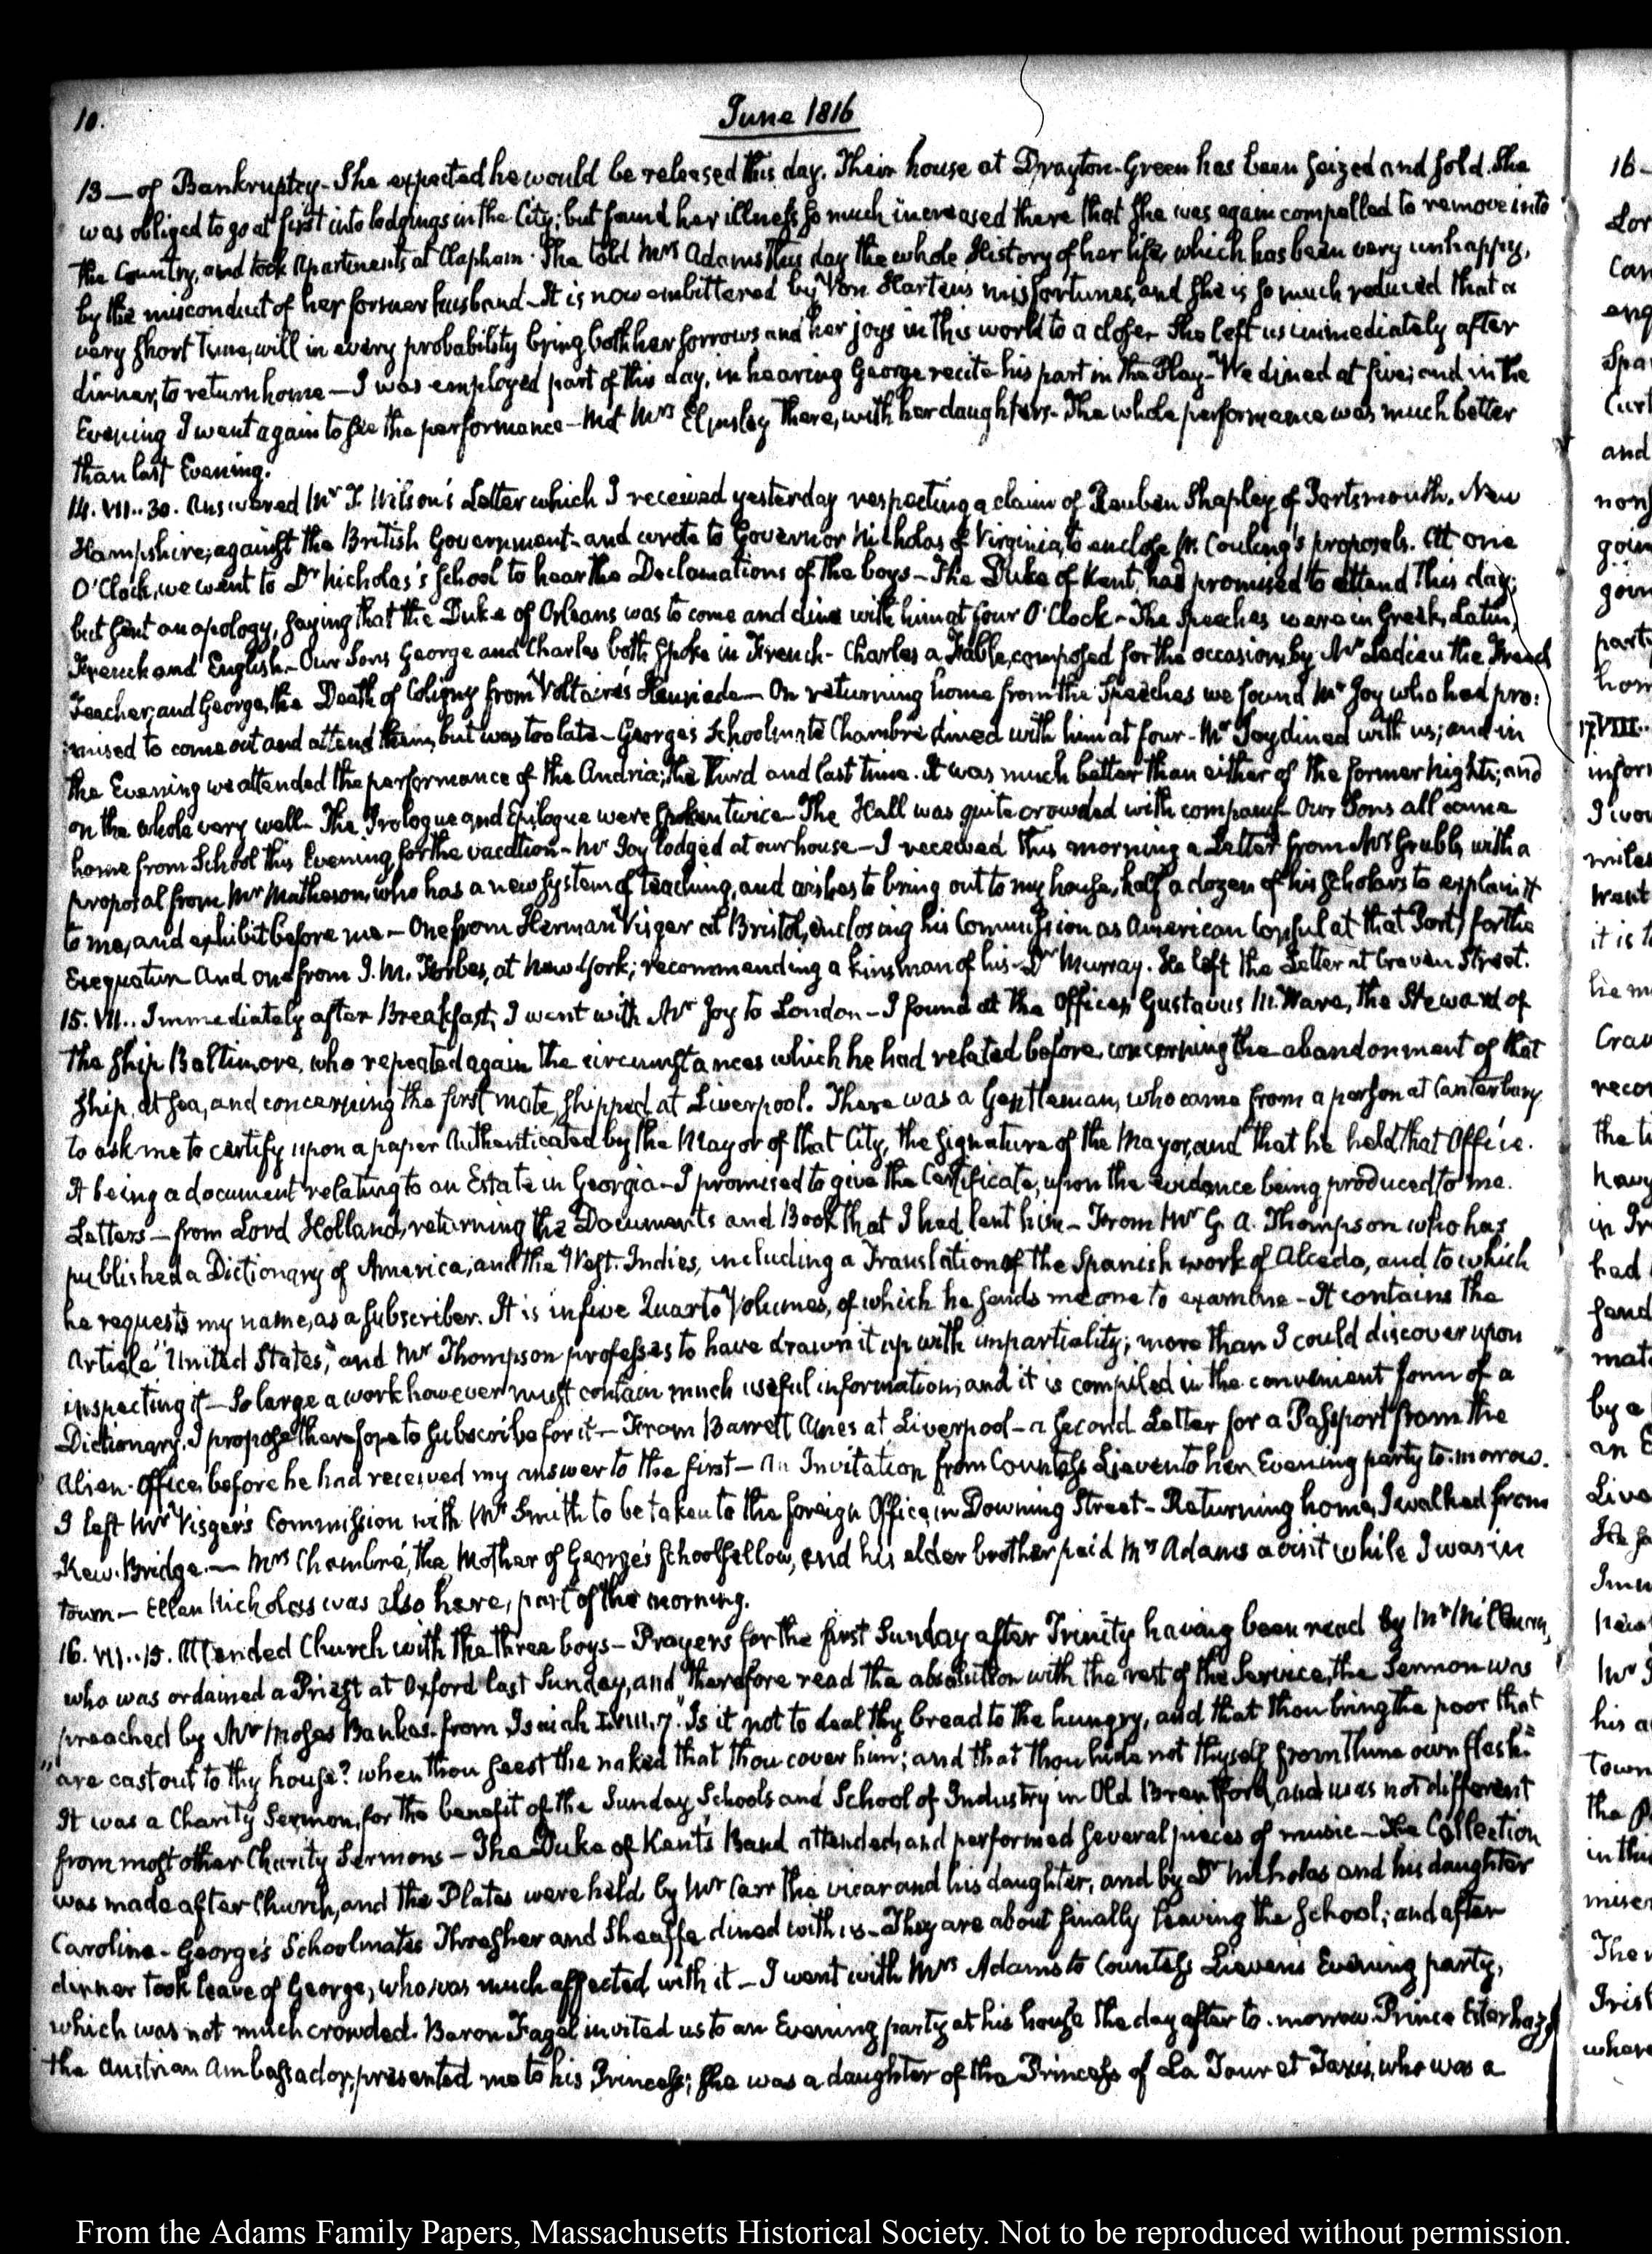 10.
June 1816
13 — of Bankruptcy - She expected he would be released this day. Their house at Drayton-Green has been seized and sold. She
was obliged to go at first into lodgings in the City; but found her illness so much increased there that she was again compelled to remove into
the Country, and took Apartments at Clapham. She told Mrs Adams this day the whole History of her life, which has been very unhappy,
by the misconduct of her former husband - It is now embittered by Von Harten's misfortunes, and she is so much reduced that a
very short time, will in every probability bring both her sorrows and her joys in this world to a close. She left us immediately after
dinner, to return home — I was employed part of this day, in hearing George recite his part in the Play - We dined at five; and in the
Evening I went again to see the performance - Met Mrs Elmsley there, with her daughters - The whole performance was much better
than last Evening.
14. VII.. 30. Answered Mr J. Wilson's Letter which I received yesterday respecting a claim of Reuben Shapley of Portsmouth, New
Hampshire; against the British Government - and wrote to Governor Nicholas of Virginia, to enclose Mr Couling's proposals. At one
O'Clock, we went to Dr Nicholas's School to hear the Declamations of the boys - The Duke of Kent, had promised to attend this day;
but sent an apology, saying that the Duke of Orleans was to come and dine with him at four O'Clock - The Speeches were in Greek, Latin,
French and English - Our Sons George and Charles both spoke in French - Charles a Fable, composed for the occasion, by Mr Ledieu the French
Teacher, and George, the Death of Coligny from Voltaire's Henriade — On returning home from the Speeches we found Mr Joy who had pro:
mised to come out and attend them, but was too late - George's Schoolmate Chambré dined with him at four - Mr Joy dined with us; and in
the Evening we attended the performance of the Andria, the third and last time. It was much better than either of the former nights; and
on the whole very well - The Prologue and Epilogue were spoken twice - The Hall was quite crowded with company - Our Sons all came
home from School this Evening, for the vacation - Mr Joy lodged at our house — I received this morning a Letter from Mr Grubb, with a
proposal from Mr Matheson, who has a new system of teaching, and wishes to bring out to my house, half a dozen of his scholars to explain it
to me, and exhibit before me — One from Herman Visger at Bristol, enclosing his Commission as American Consul at that Port, for the
Exequatur - And one from J. M. Forbes, at New York; recommending a kinsman of his - Dr Murray. He left the Letter at Craven Street.
15. VII.. Immediately after Breakfast, I went with Mr Joy to London - I found at the Office, Gustavus M. Ware, the Steward of
the Ship Baltimore, who repeated again the circumstances which he had related before, concerning the abandonment of that
Ship, at Sea, and concerning the first mate, shipped at Liverpool. There was a Gentleman, who came from a person at Canterbury
to ask me to certify upon a paper authenticated by the Mayor of that City, the signature of the Mayor, and that he held that Office.
It being a document relating to an Estate in Georgia - I promised to give the Certificate, upon the evidence being produced to me.
Letters — from Lord Holland, returning the Documents and Book that I had lent him - From Mr G. A. Thompson who has
published a Dictionary of America, and the West-Indies, including a Translation of the Spanish work of Alcedo, and to which
he requests my name, as a subscriber. It is in five Quarto Volumes, of which he sends me one to examine - It contains the
Article "United States," and Mr Thompson professes to have drawn it up with impartiality; more than I could discover upon
inspecting it — So large a work however must contain much useful information; and it is compiled in the convenient form of a
Dictionary. I propose therefore to subscribe for it — From Barrett Ames at Liverpool - a second Letter for a Passport from the
Alien-Office, before he had received my answer to the first — An Invitation from Countess Lieven to her Evening party to-morrow.
I left Mr Visger's Commission with Mr Smith to be taken to the foreign Office, in Downing Street - Returning home, I walked from
Kew-Bridge. — Mrs Chambré, the Mother of George's Schoolfellow, and his elder brother paid Mrs Adams a visit while I was in
town — Ellen Nicholas was also here, part of the morning.
16. VII.. 15. Attended Church with the three boys - Prayers for the first Sunday after Trinity having been read by Mr
who was ordained a Priest at Oxford last Sunday, and therefore read the absolution with the rest of the Service, the Sermon was
preached by Mr Moses Bankes. from Isaiah LVIII. 7. "Is it not to deal thy bread to the hungry, and that thou bring the poor that
"are cast out to thy house? when thou seest the naked that thou cover him; and that thou hide not thyself from thine own flesh."
It was a Charity Sermon, for the benefit of the Sunday Schools and School of Industry in Old Brentford, and was not different
from most other Charity Sermons - The Duke of Kent's Band attended, and performed several pieces of music - The Collection
was made after Church, and the Plates were held by Mr Carr the vicar and his daughter, and by Dr Nicholas and his daughter
Caroline - George's Schoolmates Thresher and Sheaffe dined with us - They are about finally leaving the School; and after
dinner took leave of George, who was much affected with it - I went with Mrs Adams to Countess Lieven's Evening party,
which was not much crowded. Baron Fagel invited us to an Evening party at his house the day after to-morrow. Prince Esterhazy
the Austrian Ambassador, presented me to his Princess; she was a daughter of the Princess of La Tour et Taxis, who was a
16
Lor
Can
eng
Spa
Curt
and
non
goin
goin
party
hom
17. VIII..
infor
I wou
miles
went
it is t
he m
Crav
reco
the t
have
in Fr
had
send
mat
by a
an E
Live
He s
Imm
new
Mr S
his a
town
the P
in this
miser
The
Iris
where
From the Adams Family Papers, Massachusetts Historical Society. Not to be reproduced without permission.